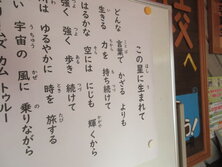 この星に生まれて
どんな言葉で かざるよりも
生きる 力を 持ち続けて
はるかな 空には にじも 輝くから
強く 強く 歩き 続けて
はゆるやかに 時を 旅する
い 宇宙の 風に 乗りながら
カム トゥルー